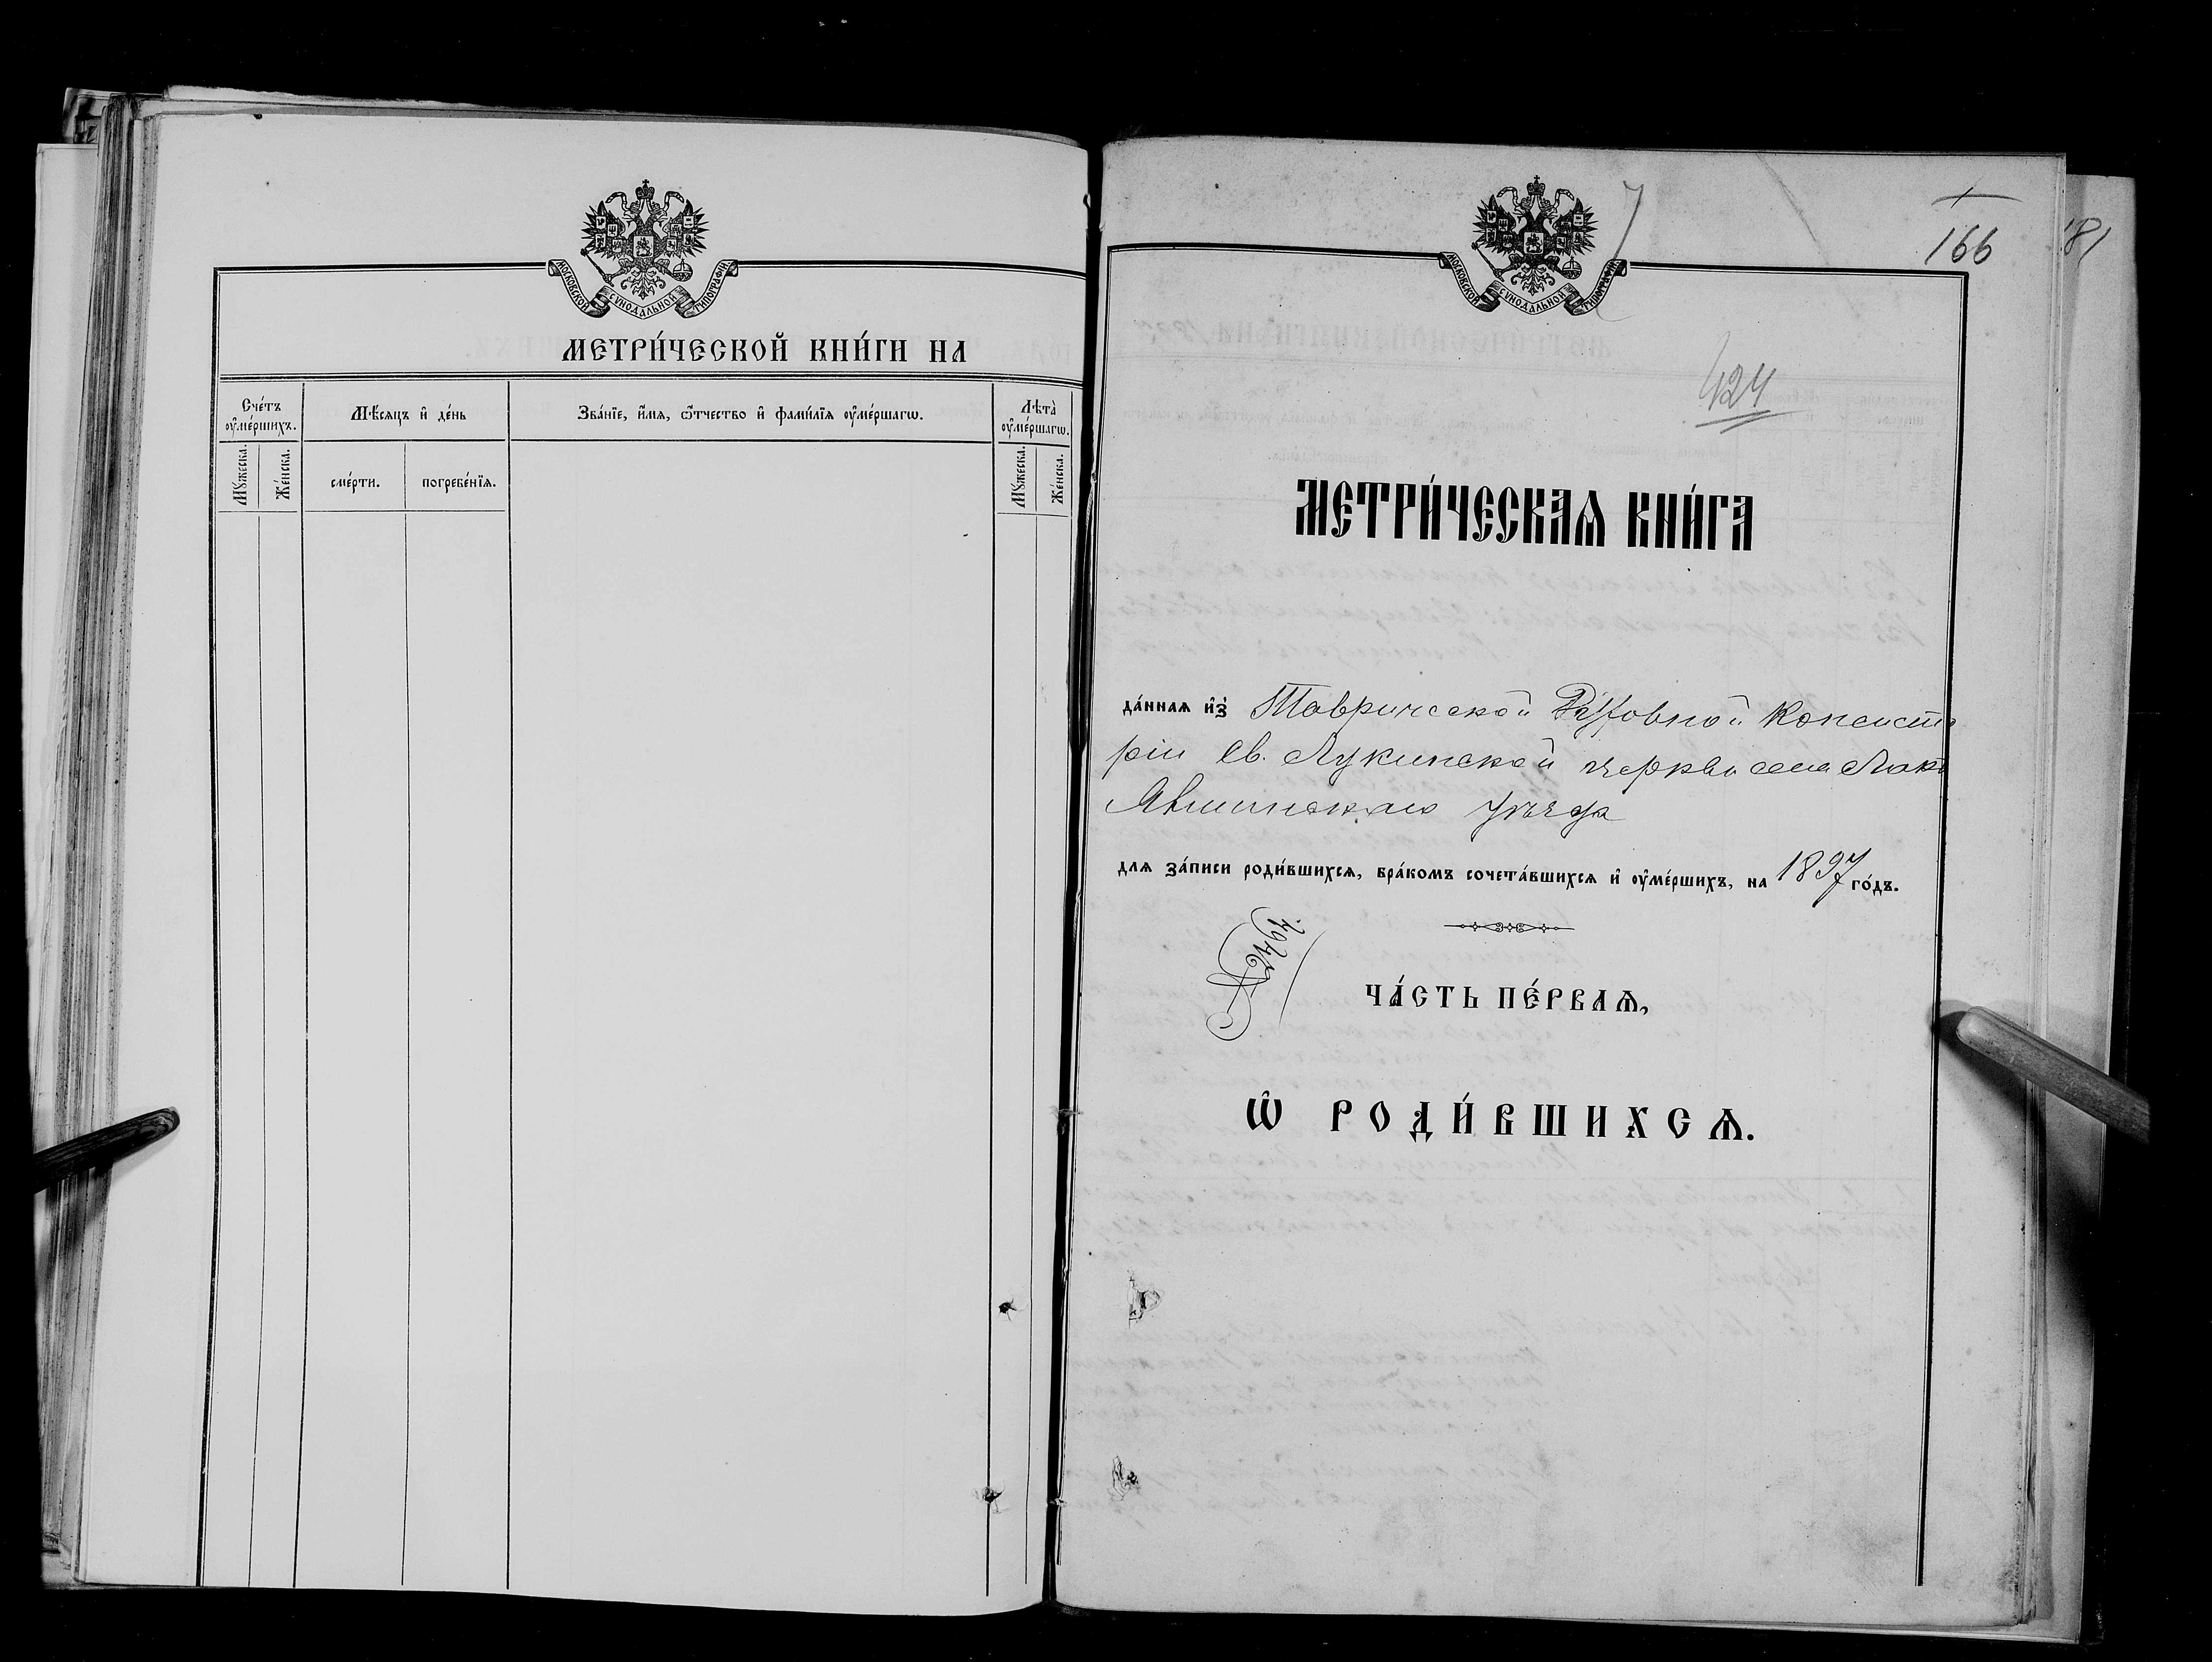 МОСКОВСКОЙ СѴНОДАЛЬНОЙ ТИПОГРАФІИ.
МЕТРИ́ЧЕСКОЙ КНИ́ГИ НА
Сче́тъ оу҆ме́ршихъ.
Мѣ́сяцъ и҆ де́нь
Зва́нїе, и҆́мя, ѻ҆́тчество и҆ фами́лїя оу҆ме́ршагѡ.
Лѣта̀ оу҆ме́ршагѡ.
Мꙋ́жеска.
Же́нска.
сме́рти.
погребе́нїѧ.
Мꙋ́жеска.
Же́нска.
МОСКОВСКОЙ СѴНОДАЛЬНОЙ ТИПОГРАФІИ.
166
181
424
МЕТРИ́ЧЕСКАѦ КНИ́ГА
да́ннаѧ и҆з̾ Таврической Духовной Консисто
ріи Св. Лукинской церкви села Лаки
Ялтинскаго уѣзда
длѧ за́писи роди́вшихсѧ, бра́комъ сочета́вшихсѧ и҆ оу҆ме́ршихъ, на 1897 го́дъ.
ЧА́СТЬ ПЕ́РВАѦ,
Ѡ҆ РОДИ́ВШИХСѦ.